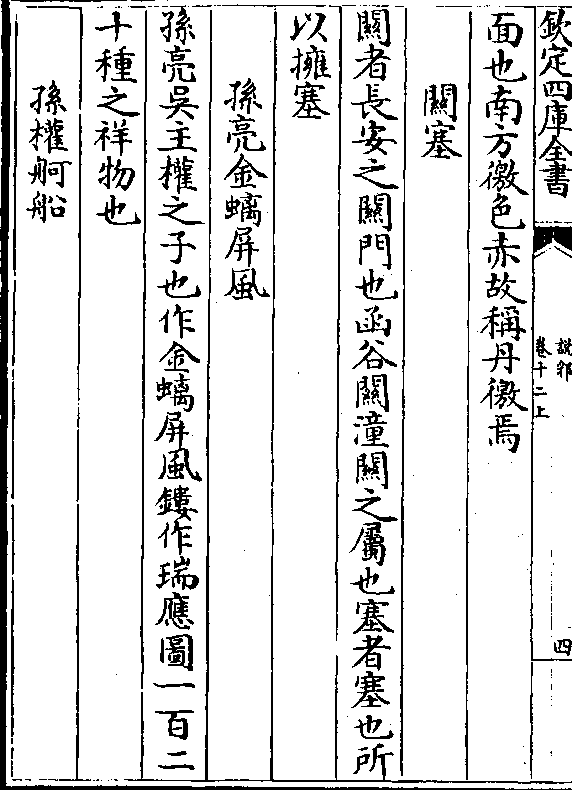 欽定四庫全書
說郛
卷十二上
四
面也南方徼色赤故稱丹徼焉
關塞
關者長安之關門也函谷關潼關之屬也塞者塞也所
以擁塞
孫亮金螭屏風
孫亮吳王權之子也作金螭屏風鏤作瑞應圖一百二
十種之祥物也
孫權舸船